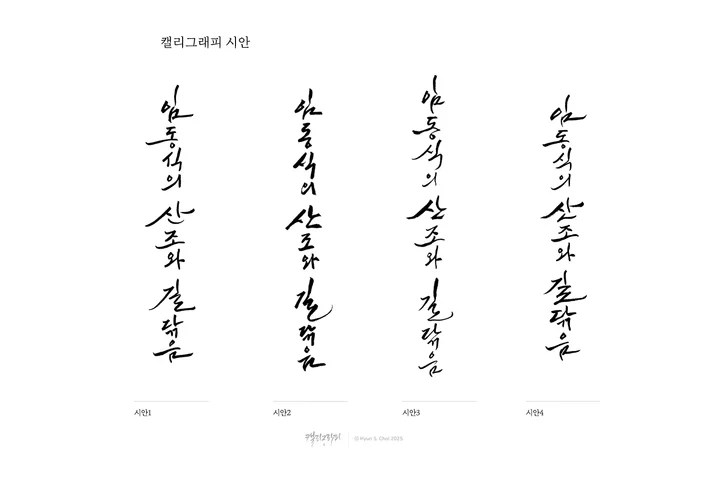 캘리그래피 시안
임동식의 산조와 길닦음
임동식의 산조와 길닦음
임동식의 산조와 길닦음
임동식의 산조와 길닦음
시안1
시안2
시안3
시안4
캘리그래피
© Hyun S. Choi 2015